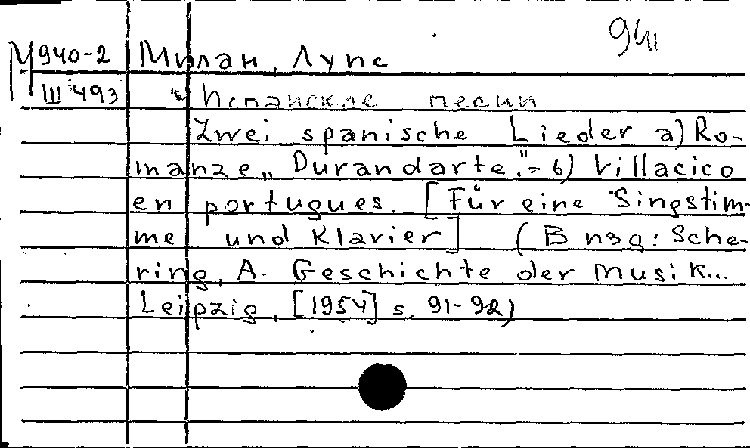 94
М 940-2 Милан, Луис
III 493 Испанские песни
Zwei spanische Lieder a) Ro-
manze „Durandarte." = б) Villacico
en portugues. [Für eine Singstim-
me und Klavier] (В изд: Sche-
ring, A. Geschichte der Musik...
Leipzig, [1954] s. 91-92)